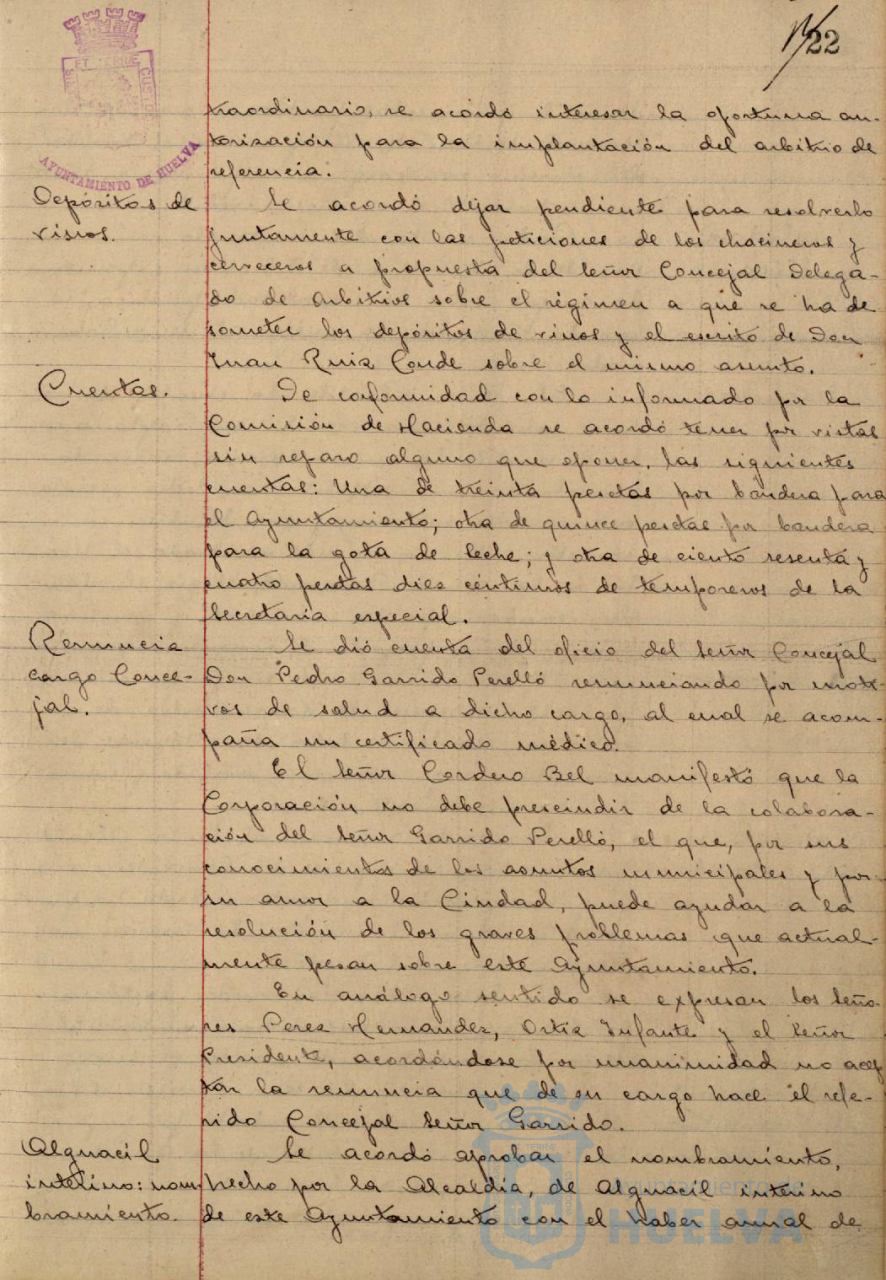 22
AYUNTAMIENTO DE HUELVA
traordinario, se acordó interesar la oportuna au-
torización para la implantación del arbitrio de
referencia.
Depósitos de
vinos.
Se acordó dejar pendiente para resolverlo
juntamente con las peticiones de los chacineros y
cerveceros a propuesta del Señor Concejal Delega-
do de Arbitrios sobre el régimen a que se ha de
someter los depósitos de vinos y el escrito de Don
Juan Ruiz Conde sobre el mismo asunto.
Cuentas.
De conformidad con lo informado por la
Comisión de Hacienda se acordó tener por vistas
sin reparo alguno que oponer, las siguientes
cuentas: Una de treinta pesetas por bandera para
el Ayuntamiento; otra de quince pesetas por bandera
para la gota de leche; y otra de ciento sesenta y
cuatro pesetas diez céntimos de temporeros de la
Secretaría especial.
Renuncia
cargo Conce-
jal.
Se dió cuenta del oficio del Señor Concejal
Don Pedro Garrido Perelló renunciando por moti-
vos de salud a dicho cargo, al cual se acom-
paña un certificado médico.
El Señor Cordero Bel manifestó que la
Corporación no debe prescindir de la colabora-
ción del Señor Garrido Perelló, el que, por sus
conocimientos de los asuntos municipales y por
su amor a la Ciudad, puede ayudar a la
resolución de los graves problemas que actual-
mente pesan sobre este Ayuntamiento.
En análogo sentido se expresan los Seño-
res Perez Hernandez, Ortiz Infante y el Señor
Presidente, acordándose por unanimidad no acep
tar la renuncia que de su cargo hace el refe-
rido Concejal Señor Garrido.
Alguacil
interino: nom-
bramiento.
Se acordó aprobar el nombramiento,
hecho por la Alcaldía, de Alguacil interino
de este Ayuntamiento con el haber anual de
Ayuntamiento de
HUELVA